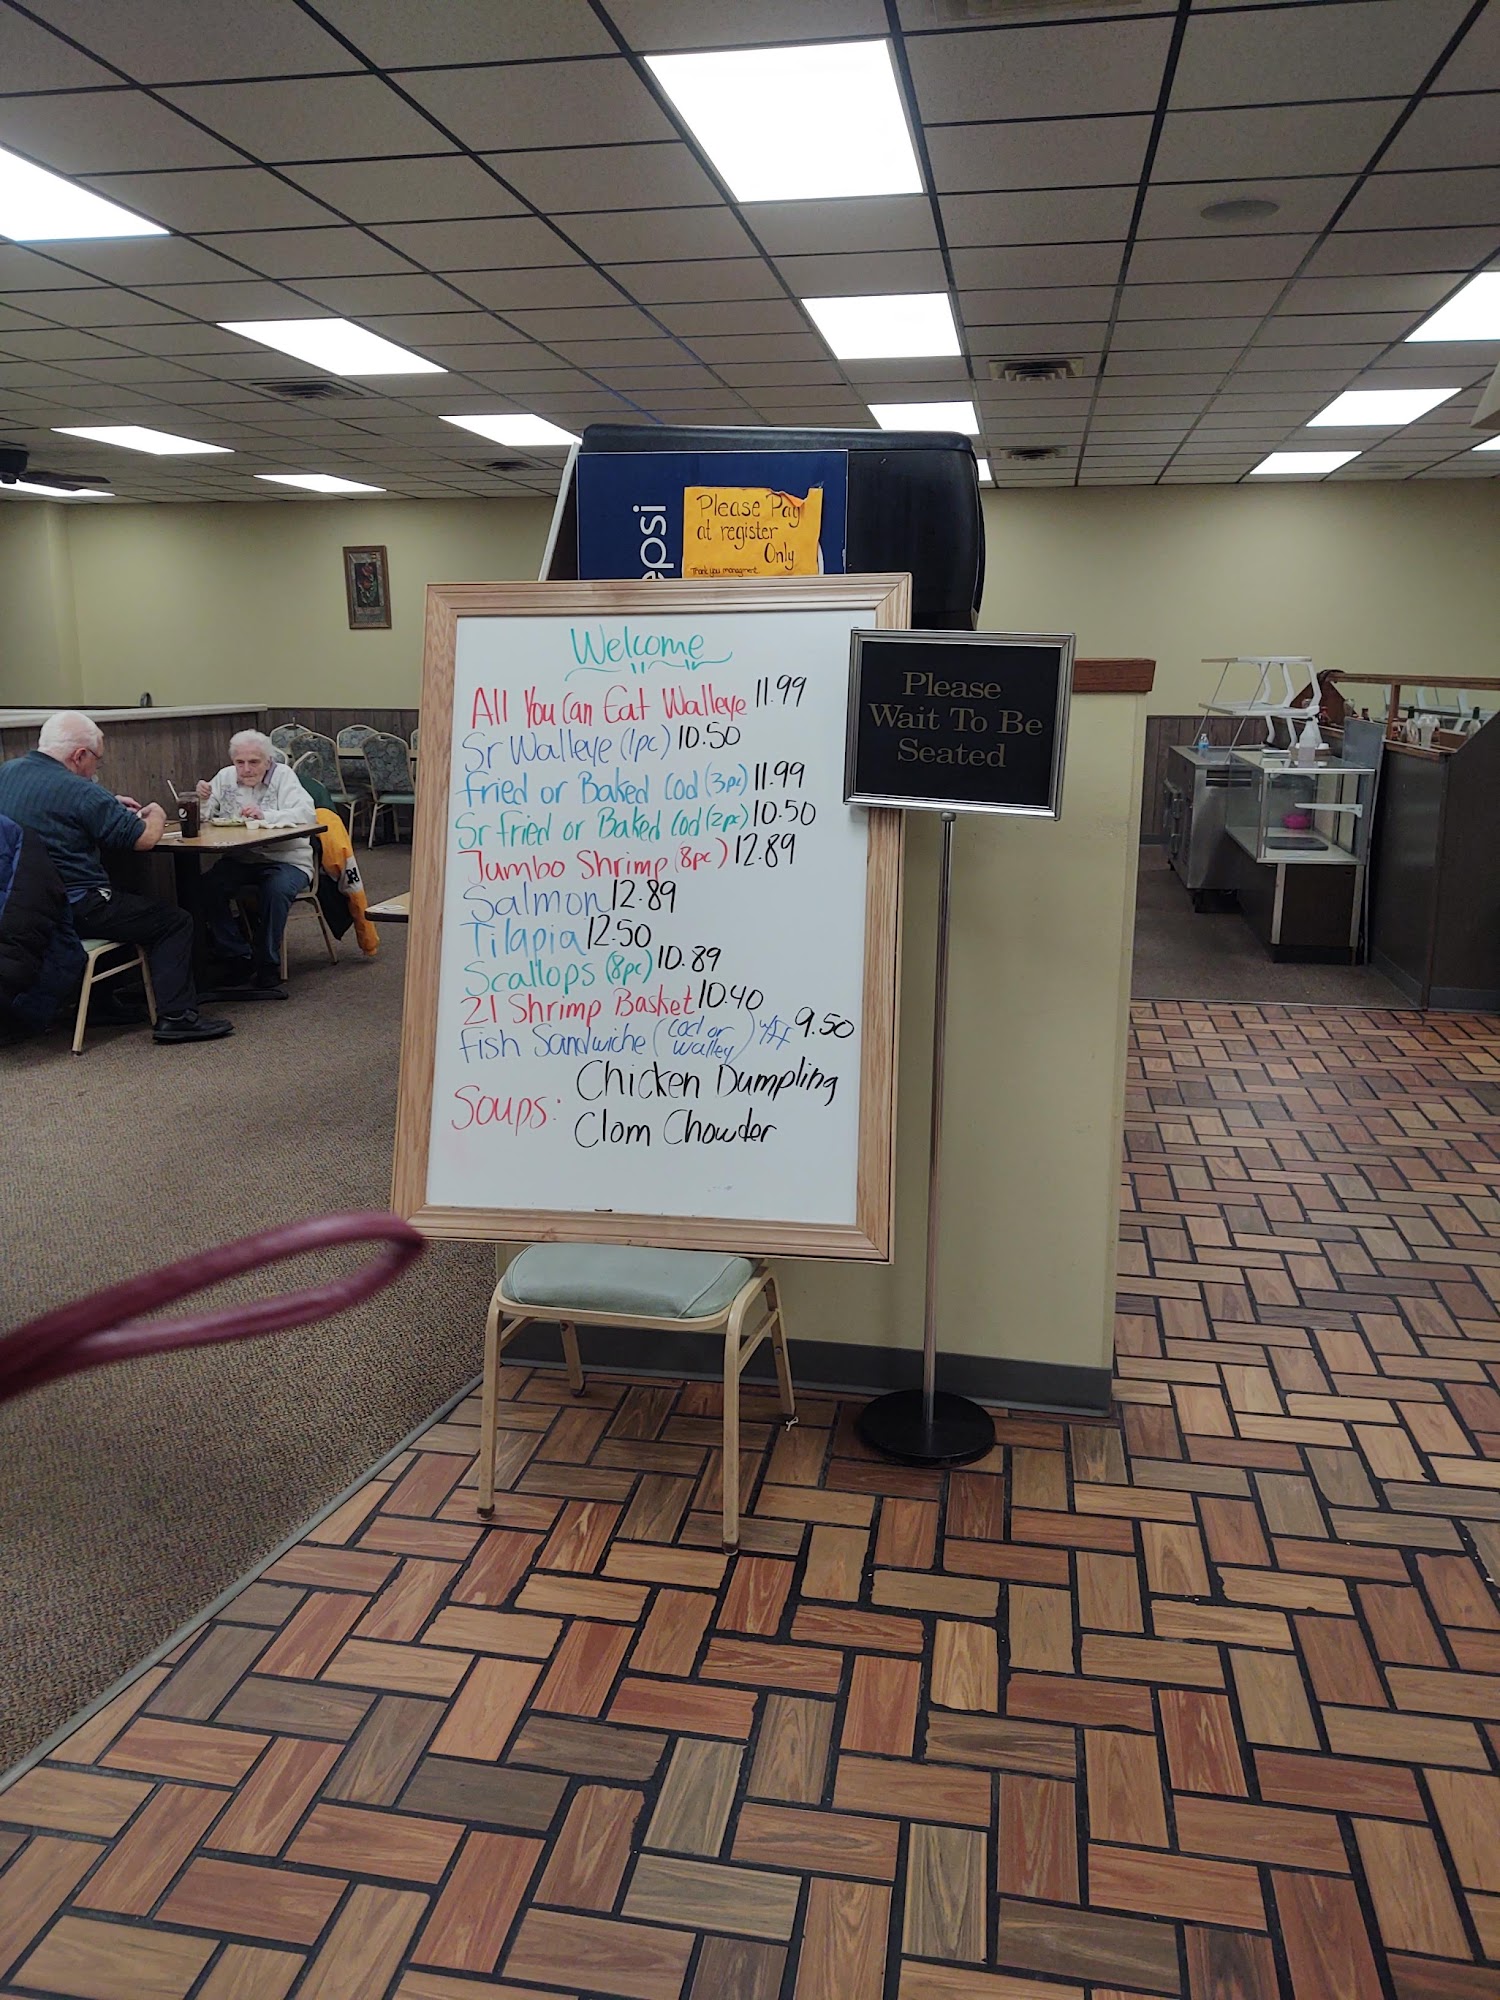 epsi
Please Pay
at register
Only
Thank you managment
Welcome
All You Can Eat Walleye 11.99
Sr Walleye (1pc) 10.50
Fried or Baked Cod (3pc) 11.99
Sr Fried or Baked Cod (2pc) 10.50
Jumbo Shrimp (8pc) 12.89
Salmon 12.89
Tilapia 12.50
Scallops (8pc) 10.89
21 Shrimp Basket 10.40
Fish Sandwiche (Cod or Walley) w/FF 9.50
Soups: Chicken Dumpling
Clam Chowder
Please
Wait To Be
Seated